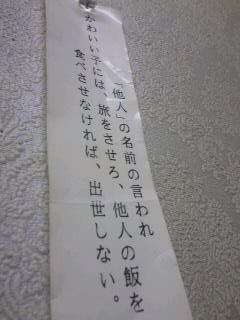 「他人」の名前の言われ
かわいい子には、旅をさせろ、他人の飯を
食べさせなければ、出世しない。